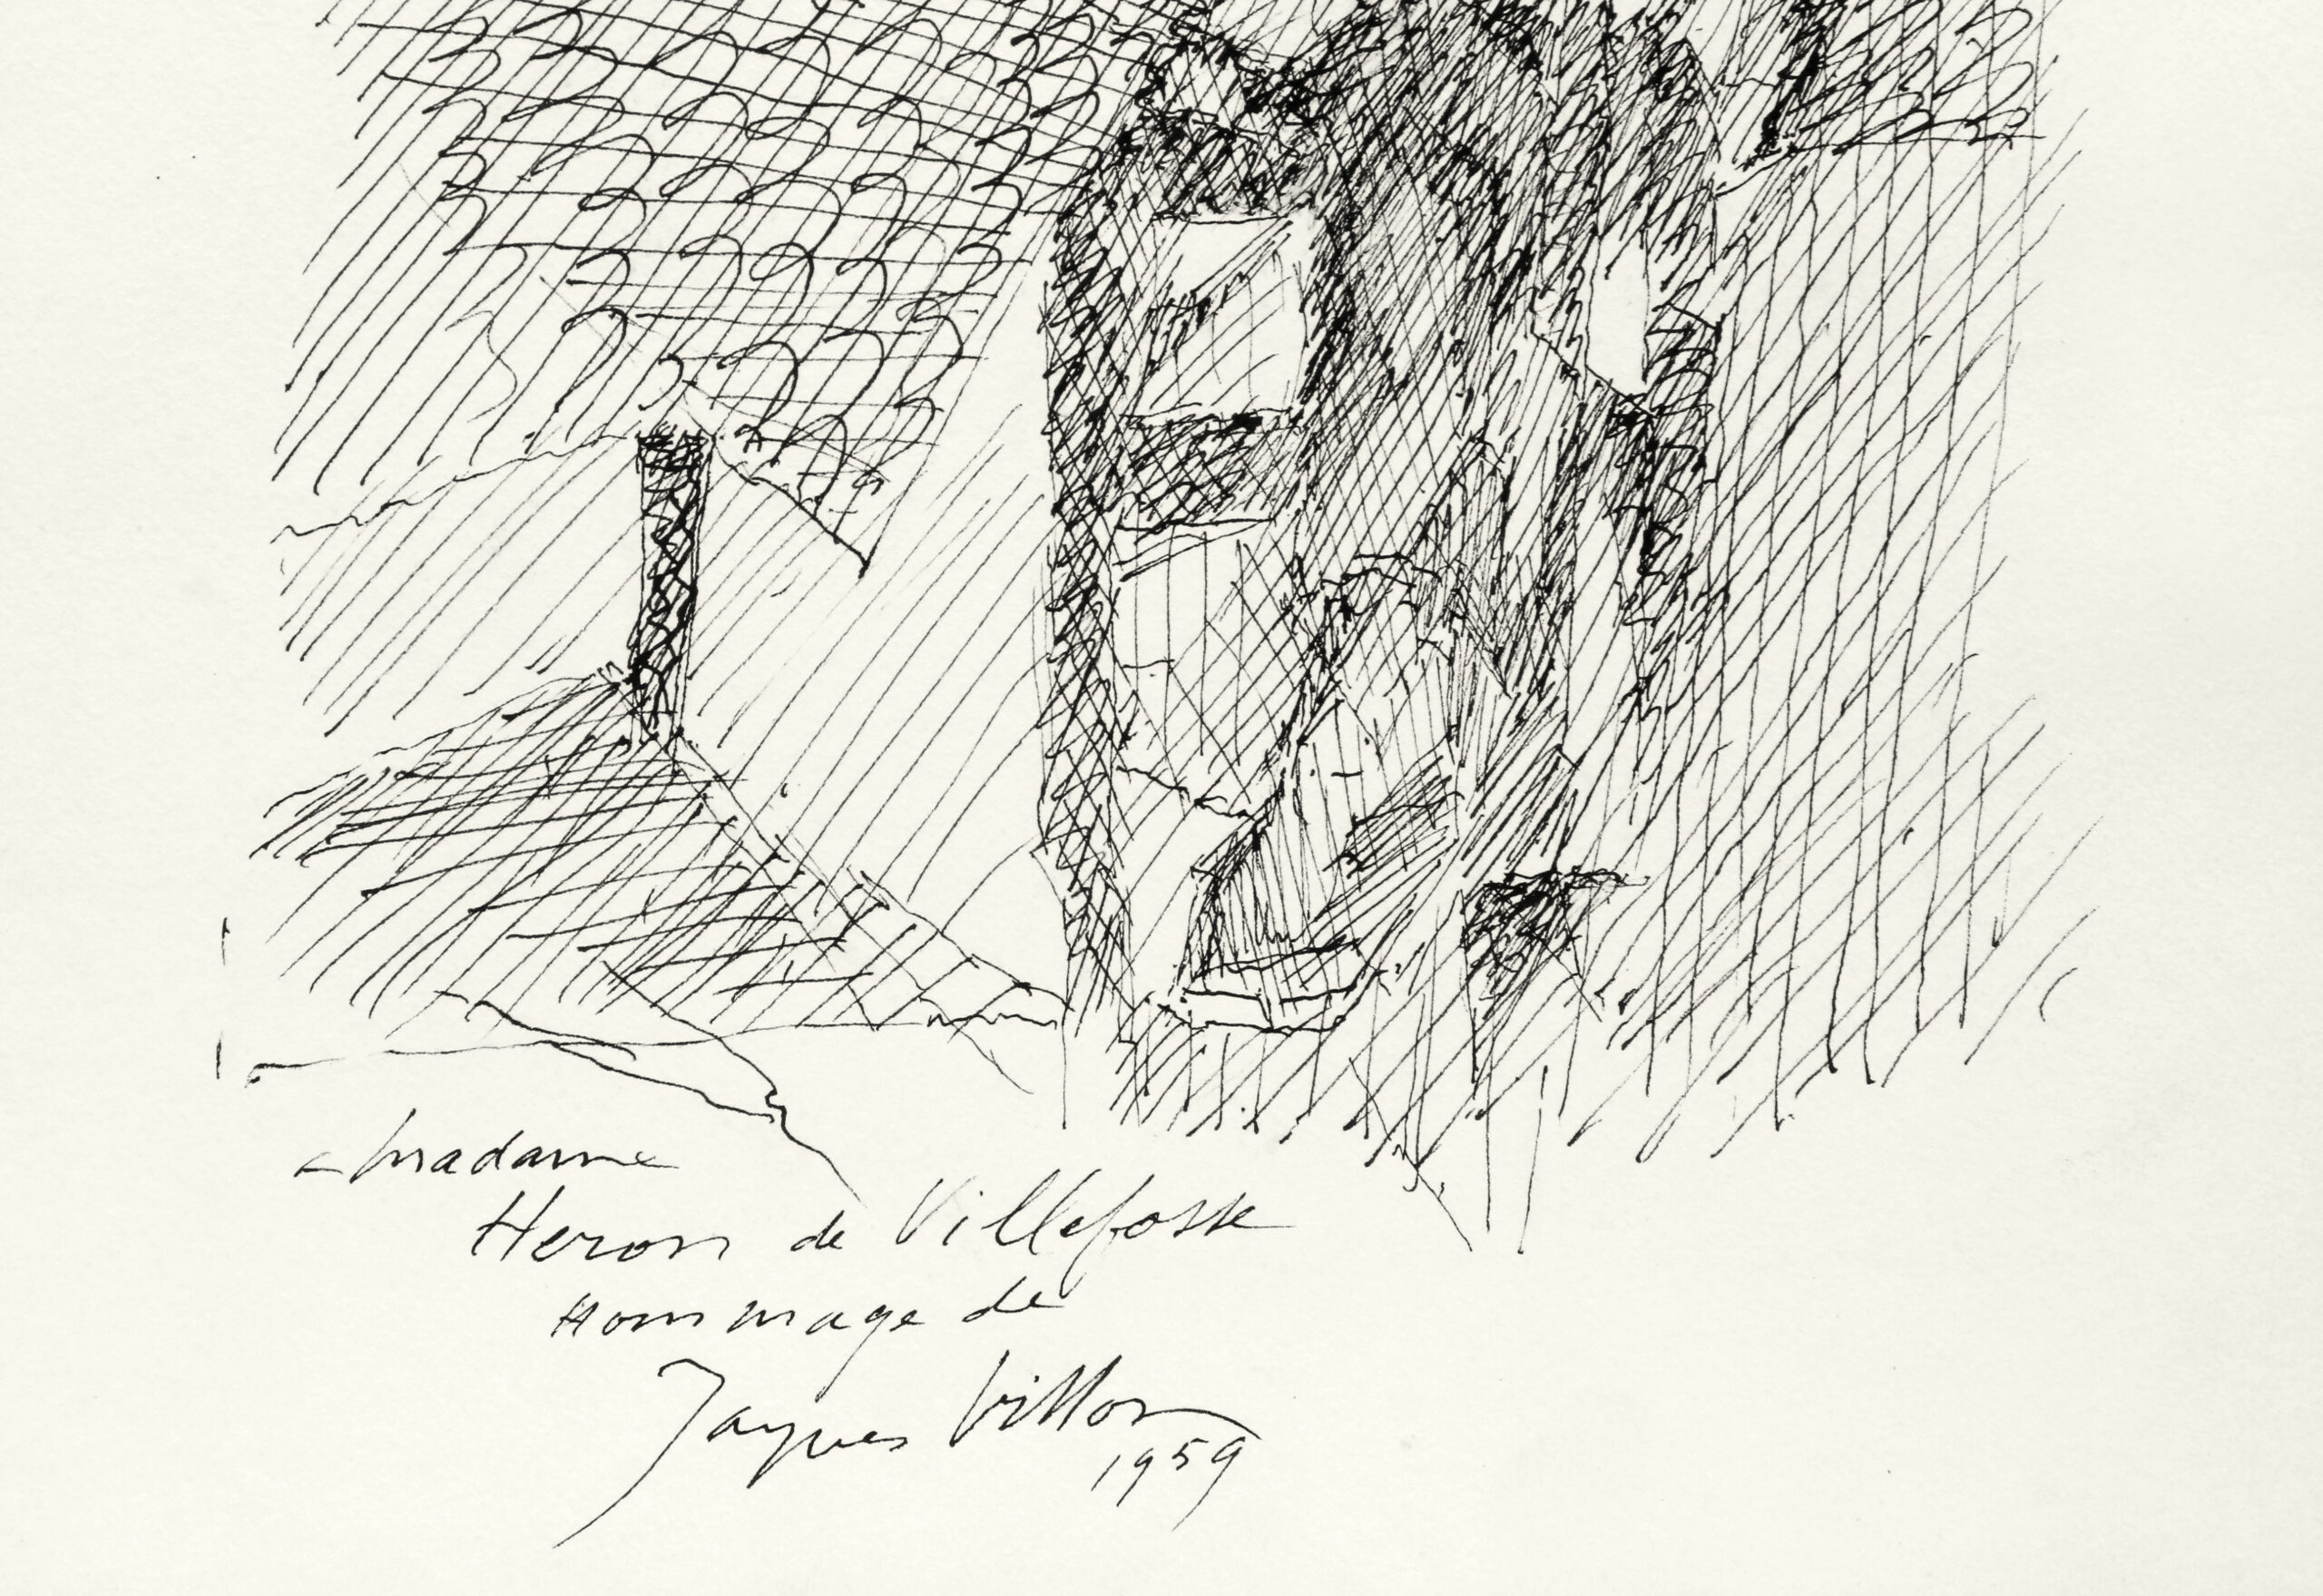 a Madame
Heron de Villefosse
Hommage de
Jacques Villon
1959